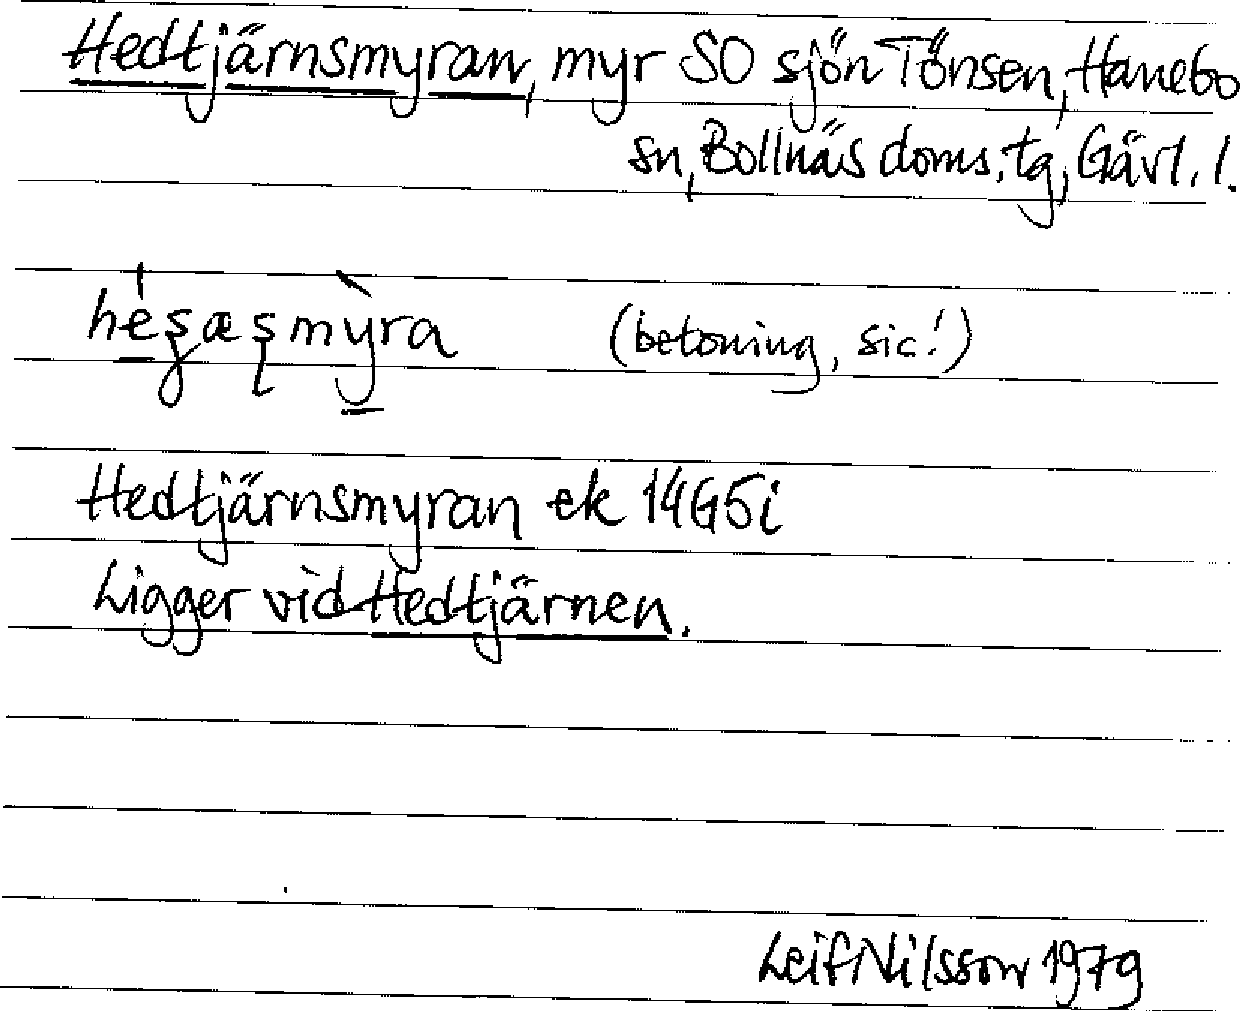 Hedtjärnsmyran, myr SO sjön Tönsen, Hanebo
sn, Bollnäs doms. tg, Gävl. l.
(betoning, sic!)
Hedtjärnsmyran ek 14G5i
Ligger vid Hedtjärnen.
Leif Nilsson 1979